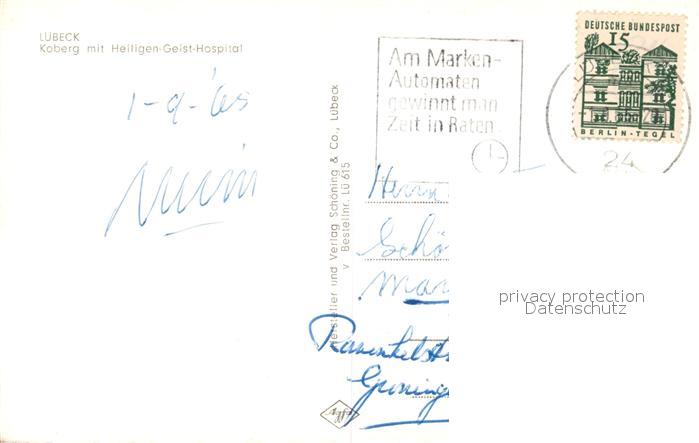 LÜBECK
Koberg mit Heiligen-Geist-Hospital
1-9-'65
Hersteller und Verlag Schöning & Co., Lübeck
Bestellnr. Lü 615
Am Marken-
Automaten
gewinnt man
Zeit in Raten
DEUTSCHE BUNDESPOST
15
BERLIN-TEGEL
24
Herrn
Schö
Gröning
privacy protection
Datenschutz